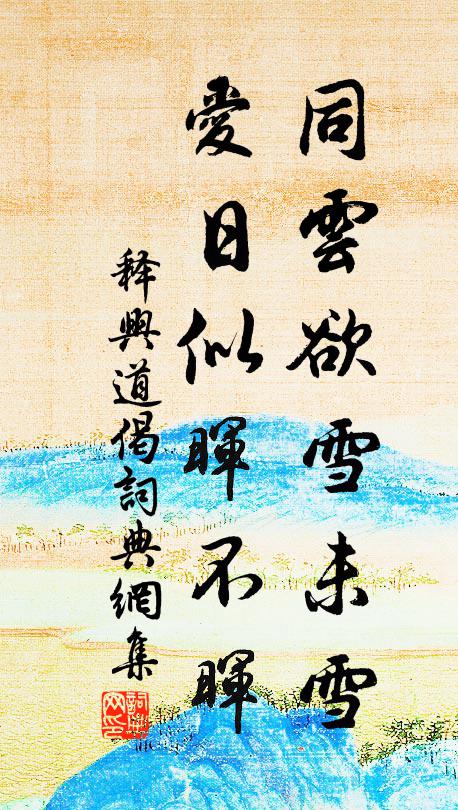 同雲欲雪未雪
愛日似暉不暉
释興道偈詞典網集